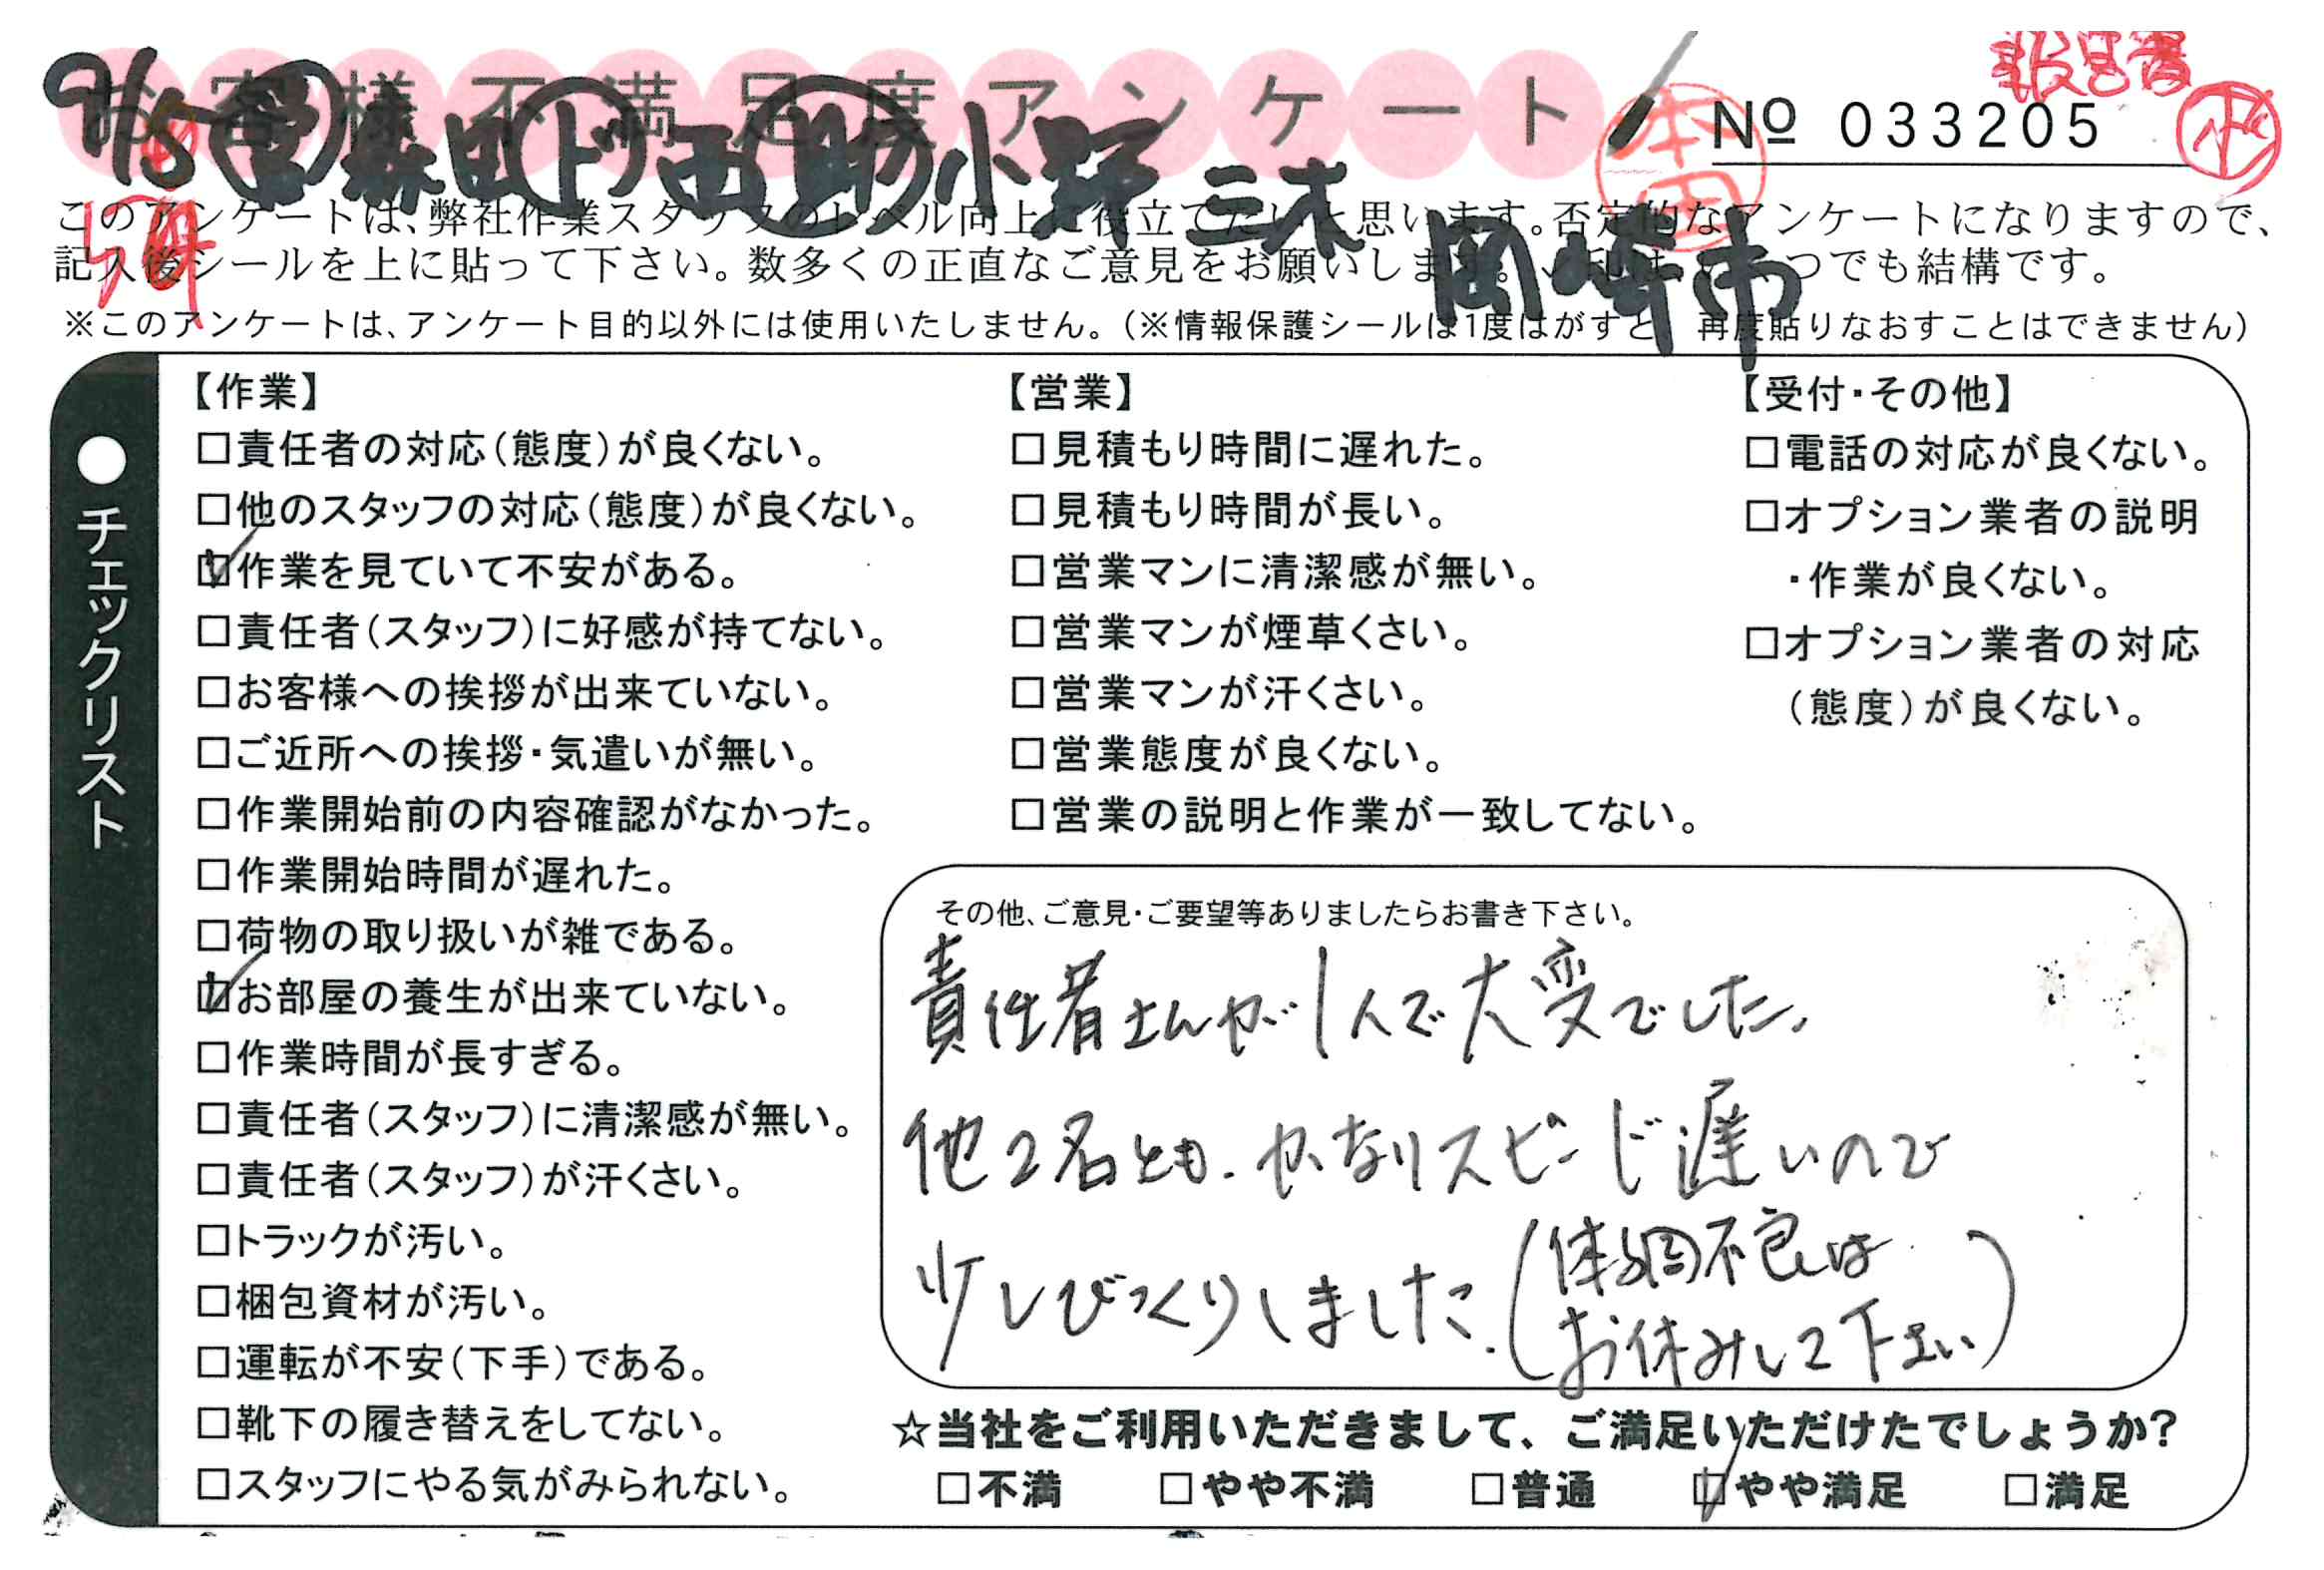 お客様不満足度アンケート
No 033205
報告書
本田
9/15 営 森田 ド 西 助 小野 三木 岡崎市
このアンケートは、弊社作業スタッフのレベル向上に役立てたいと思います。否定的なアンケートになりますので、
記入後シールを上に貼って下さい。数多くの正直なご意見をお願いします。
つでも結構です。
※このアンケートは、アンケート目的以外には使用いたしません。（※情報保護シールは1度はがすと 再度貼りなおすことはできません）
●チェックリスト
【作業】
□責任者の対応（態度）が良くない。
□他のスタッフの対応（態度）が良くない。
☑作業を見ていて不安がある。
□責任者（スタッフ）に好感が持てない。
□お客様への挨拶が出来ていない。
□ご近所への挨拶・気遣いが無い。
□作業開始前の内容確認がなかった。
□作業開始時間が遅れた。
□荷物の取り扱いが雑である。
☑お部屋の養生が出来ていない。
□作業時間が長すぎる。
□責任者（スタッフ）に清潔感が無い。
□責任者（スタッフ）が汗くさい。
□トラックが汚い。
□梱包資材が汚い。
□運転が不安（下手）である。
□靴下の履き替えをしてない。
□スタッフにやる気がみられない。
【営業】
□見積もり時間に遅れた。
□見積もり時間が長い。
□営業マンに清潔感が無い。
□営業マンが煙草くさい。
□営業マンが汗くさい。
□営業態度が良くない。
□営業の説明と作業が一致してない。
【受付・その他】
□電話の対応が良くない。
□オプション業者の説明
・作業が良くない。
□オプション業者の対応
（態度）が良くない。
その他、ご意見・ご要望等ありましたらお書き下さい。
責任者さんが1人で大変でした。
他2名とも、かなりスピード遅いので
少しびっくりしました。（体調不良は
お休みして下さい）
☆当社をご利用いただきまして、ご満足いただけたでしょうか?
□不満 □やや不満 □普通 ☑やや満足 □満足